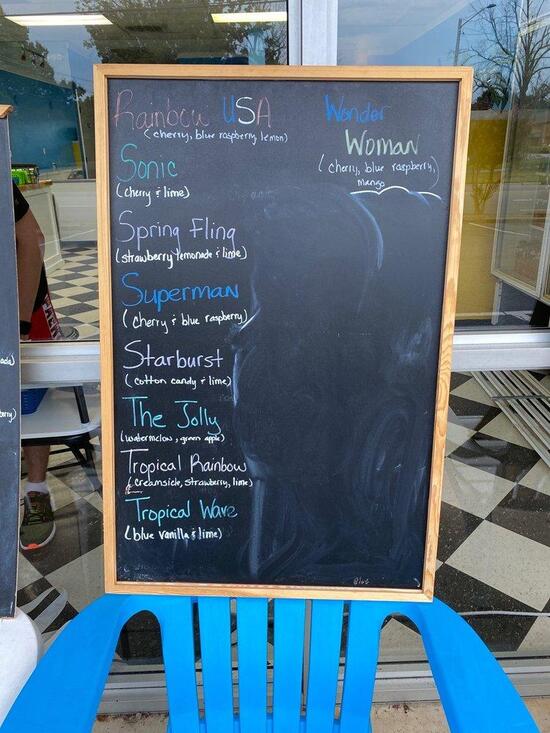 Rainbow USA
(cherry, blue raspberry, lemon)
Sonic
(cherry & lime)
Spring Fling
(strawberry lemonade & lime)
Superman
(cherry & blue raspberry)
Starburst
(cotton candy & lime)
The Jolly
(watermelon, green apple)
Tropical Rainbow
(creamsicle, strawberry, lime)
Tropical Wave
(blue vanilla & lime)
Wonder
Woman
(cherry, blue raspberry,
mango